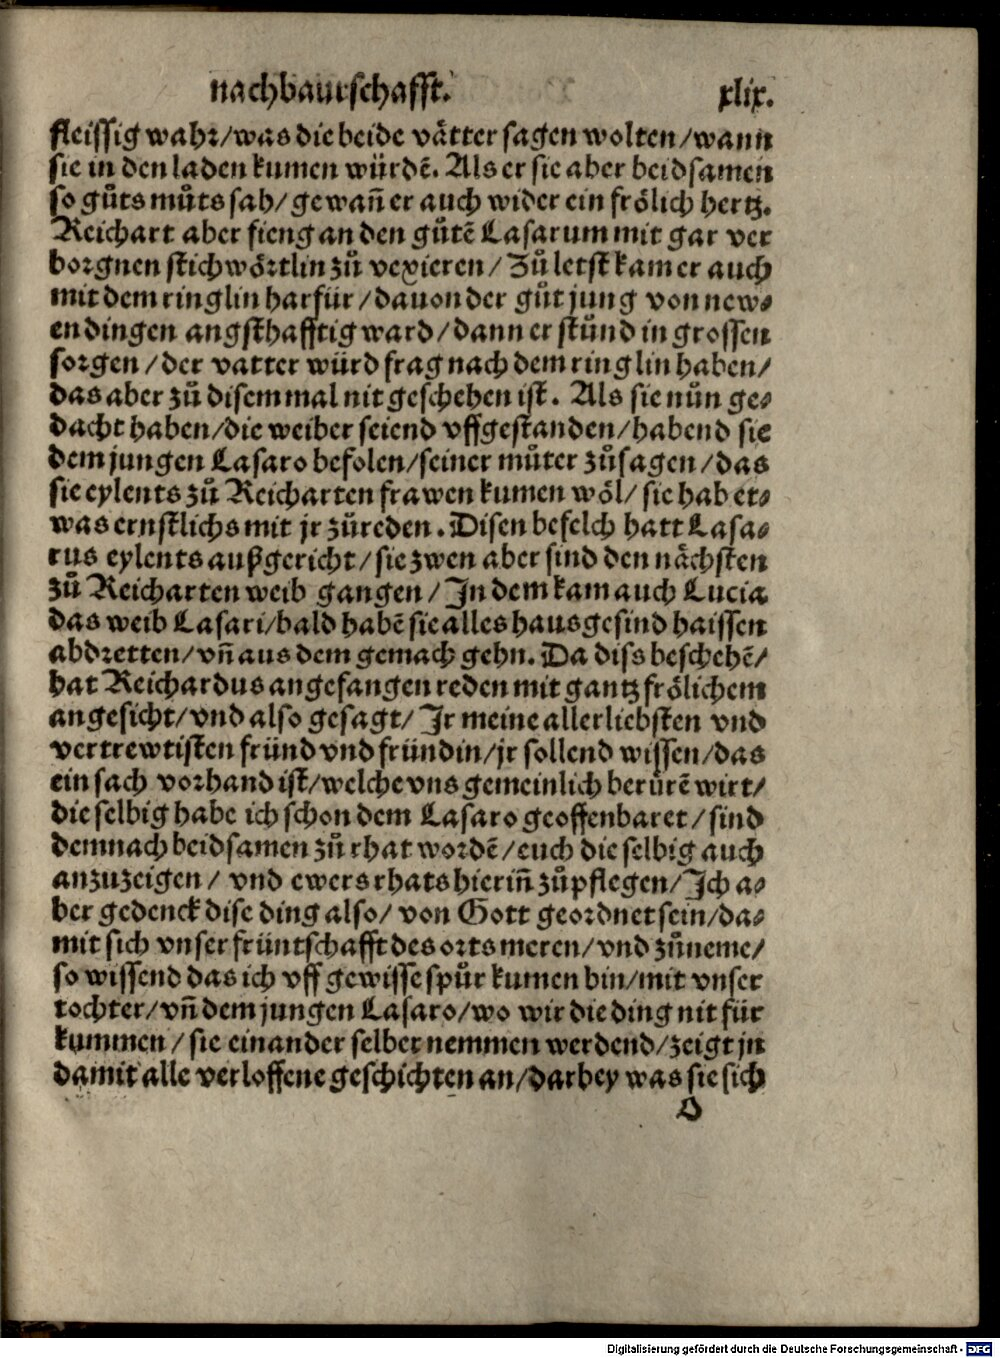 nachbaurschafft. xlix.
fleissig wahr/was die beide vaͤtter sagen wolten/wann
sie in den laden kumen würdē. Als er sie aber beidsamen
so guͦts muͦts sah/gewañ er auch wider ein froͤlich hertz.
Reichart aber fieng an den guͦtē Lasarum mit gar ver
borgnen stichwoͤrtlin zuͦ vexieren/Zuͦ letst kam er auch
mit dem ringlin harfür/dauon der guͦt jung von new⸗
en dingen angsthafftig ward/dann er stuͦnd in grossen
sorgen/der vatter würd frag nach dem ringlin haben/
das aber zuͦ disem mal nit geschehen ist. Als sie nuͦn ge⸗
dacht haben/die weiber seiend vffgestanden/habend sie
dem jungen Lasaro befolen/seiner muͦter zuͦsagen/das
sie eylents zuͦ Reicharten frawen kumen woͤl/sie hab et⸗
was ernstlichs mit jr zuͦreden. Disen befelch hatt Lasa⸗
rus eylents außgericht/sie zwen aber sind den naͤchsten
zuͦ Reicharten weib gangen/In dem kam auch Lucia
das weib Lasari/bald habē sie alles hausgesind haissen
abdretten/vñ aus dem gemach gehn. Da diss beschehē/
hat Reichardus angefangen reden mit gantz froͤlichem
angesicht/vnd also gesagt/Ir meine allerliebsten vnd
vertrewtisten fründ vnd fründin/jr sollend wissen/das
ein sach vorhand ist/welche vns gemeinlich beruͤrē wirt/
die selbig habe ich schon dem Lasaro geoffenbaret/sind
demnach beidsamen zuͦ rhat wordē/euch die selbig auch
anzuzeigen/vnd ewers rhats hieriñ zuͦpflegen/Ich a⸗
ber gedenck dise ding also/von Gott geordnet sein/da⸗
mit sich vnser früntschafft des orts meren/vnd zuͦneme/
so wissend das ich vff gewisse spuͤr kumen bin/mit vnser
tochter/vñ dem jungen Lasaro/wo wir die ding nit für
kummen/sie einander selber nemmen werdend/zeigt jn
damit alle verloffene geschichten an/darbey was sie sich
O
Digitalisierung gefördert durch die Deutsche Forschungsgemeinschaft - DFG